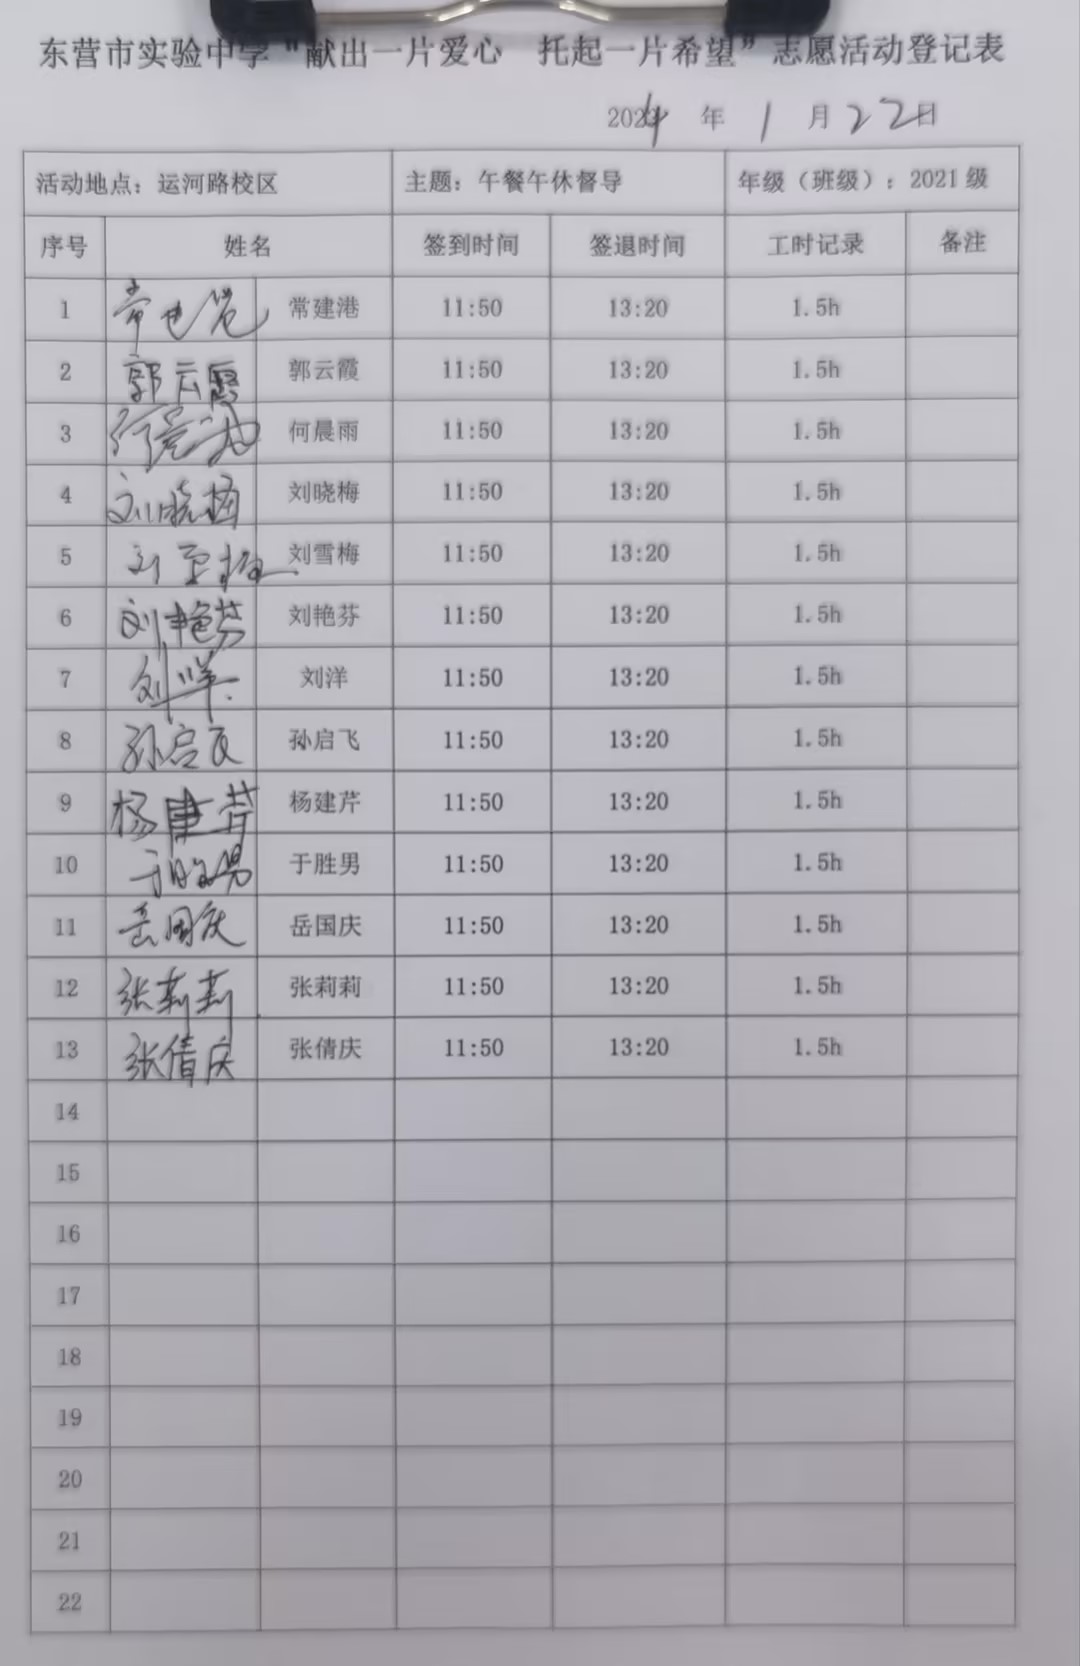 东营市实验中学“献出一片爱心 托起一片希望”志愿活动登记表
2024 年 1 月 22日
活动地点：运河路校区 主题：午餐午休督导 年级（班级）：2021 级
序号 姓名 签到时间 签退时间 工时记录 备注
1 常建港 常建港 11:50 13:20 1.5h
2 郭云霞 郭云霞 11:50 13:20 1.5h
3 何晨雨 何晨雨 11:50 13:20 1.5h
4 刘晓梅 刘晓梅 11:50 13:20 1.5h
5 刘雪梅 刘雪梅 11:50 13:20 1.5h
6 刘艳芬 刘艳芬 11:50 13:20 1.5h
7 刘洋 刘洋 11:50 13:20 1.5h
8 孙启飞 孙启飞 11:50 13:20 1.5h
9 杨建芹 杨建芹 11:50 13:20 1.5h
10 于胜男 于胜男 11:50 13:20 1.5h
11 岳国庆 岳国庆 11:50 13:20 1.5h
12 张莉莉 张莉莉 11:50 13:20 1.5h
13 张倩庆 张倩庆 11:50 13:20 1.5h
14
15
16
17
18
19
20
21
22